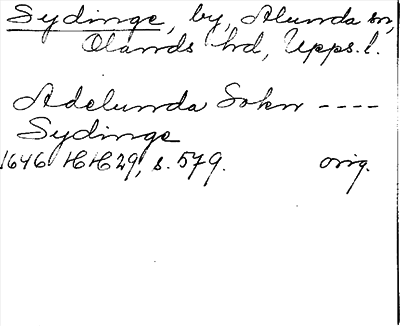 Sydinge, by, Alunda sn,
Olands hd, Upps. l.
Adelunda Sokn ----
Sydinge
1646 HH 29, s. 579. orig.